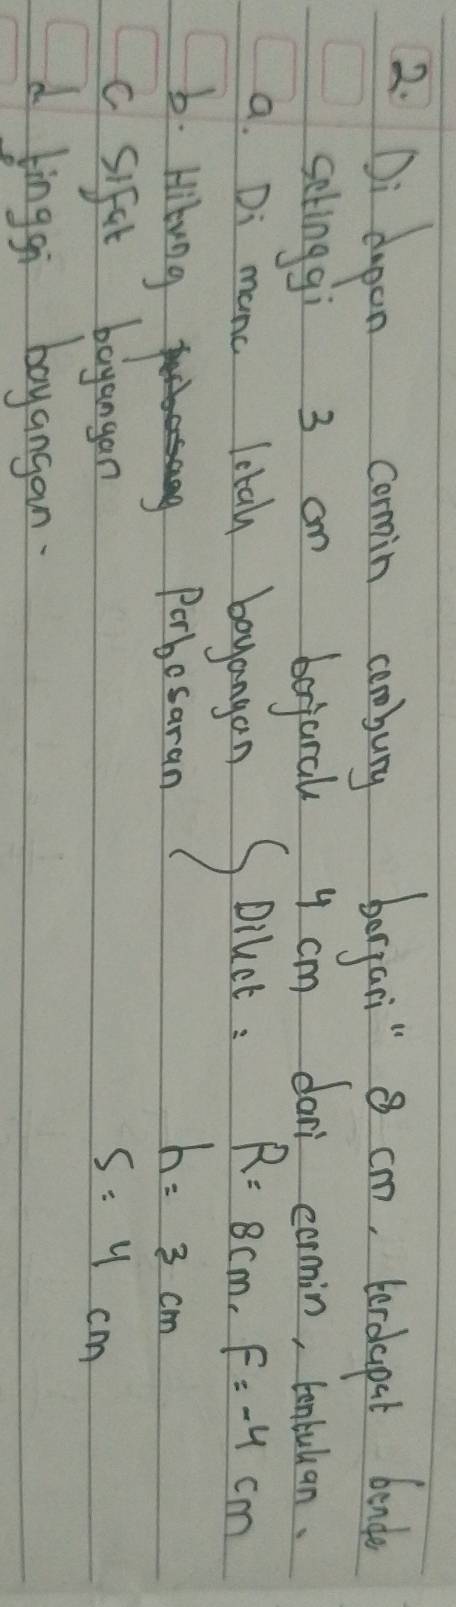 2. Di depan cermin cembung berjari" 8 cm, terdapat benda
setinggi 3 cm berjarak 4 cm dari cermin, tentukan.
a. Di mana letak bayangan
b. Hitung perbesaran
c Sifat bayangan
d tinggi bayangan.
Diket : R= 8cm, F= -4 cm
h= 3 cm
S= 4 cm